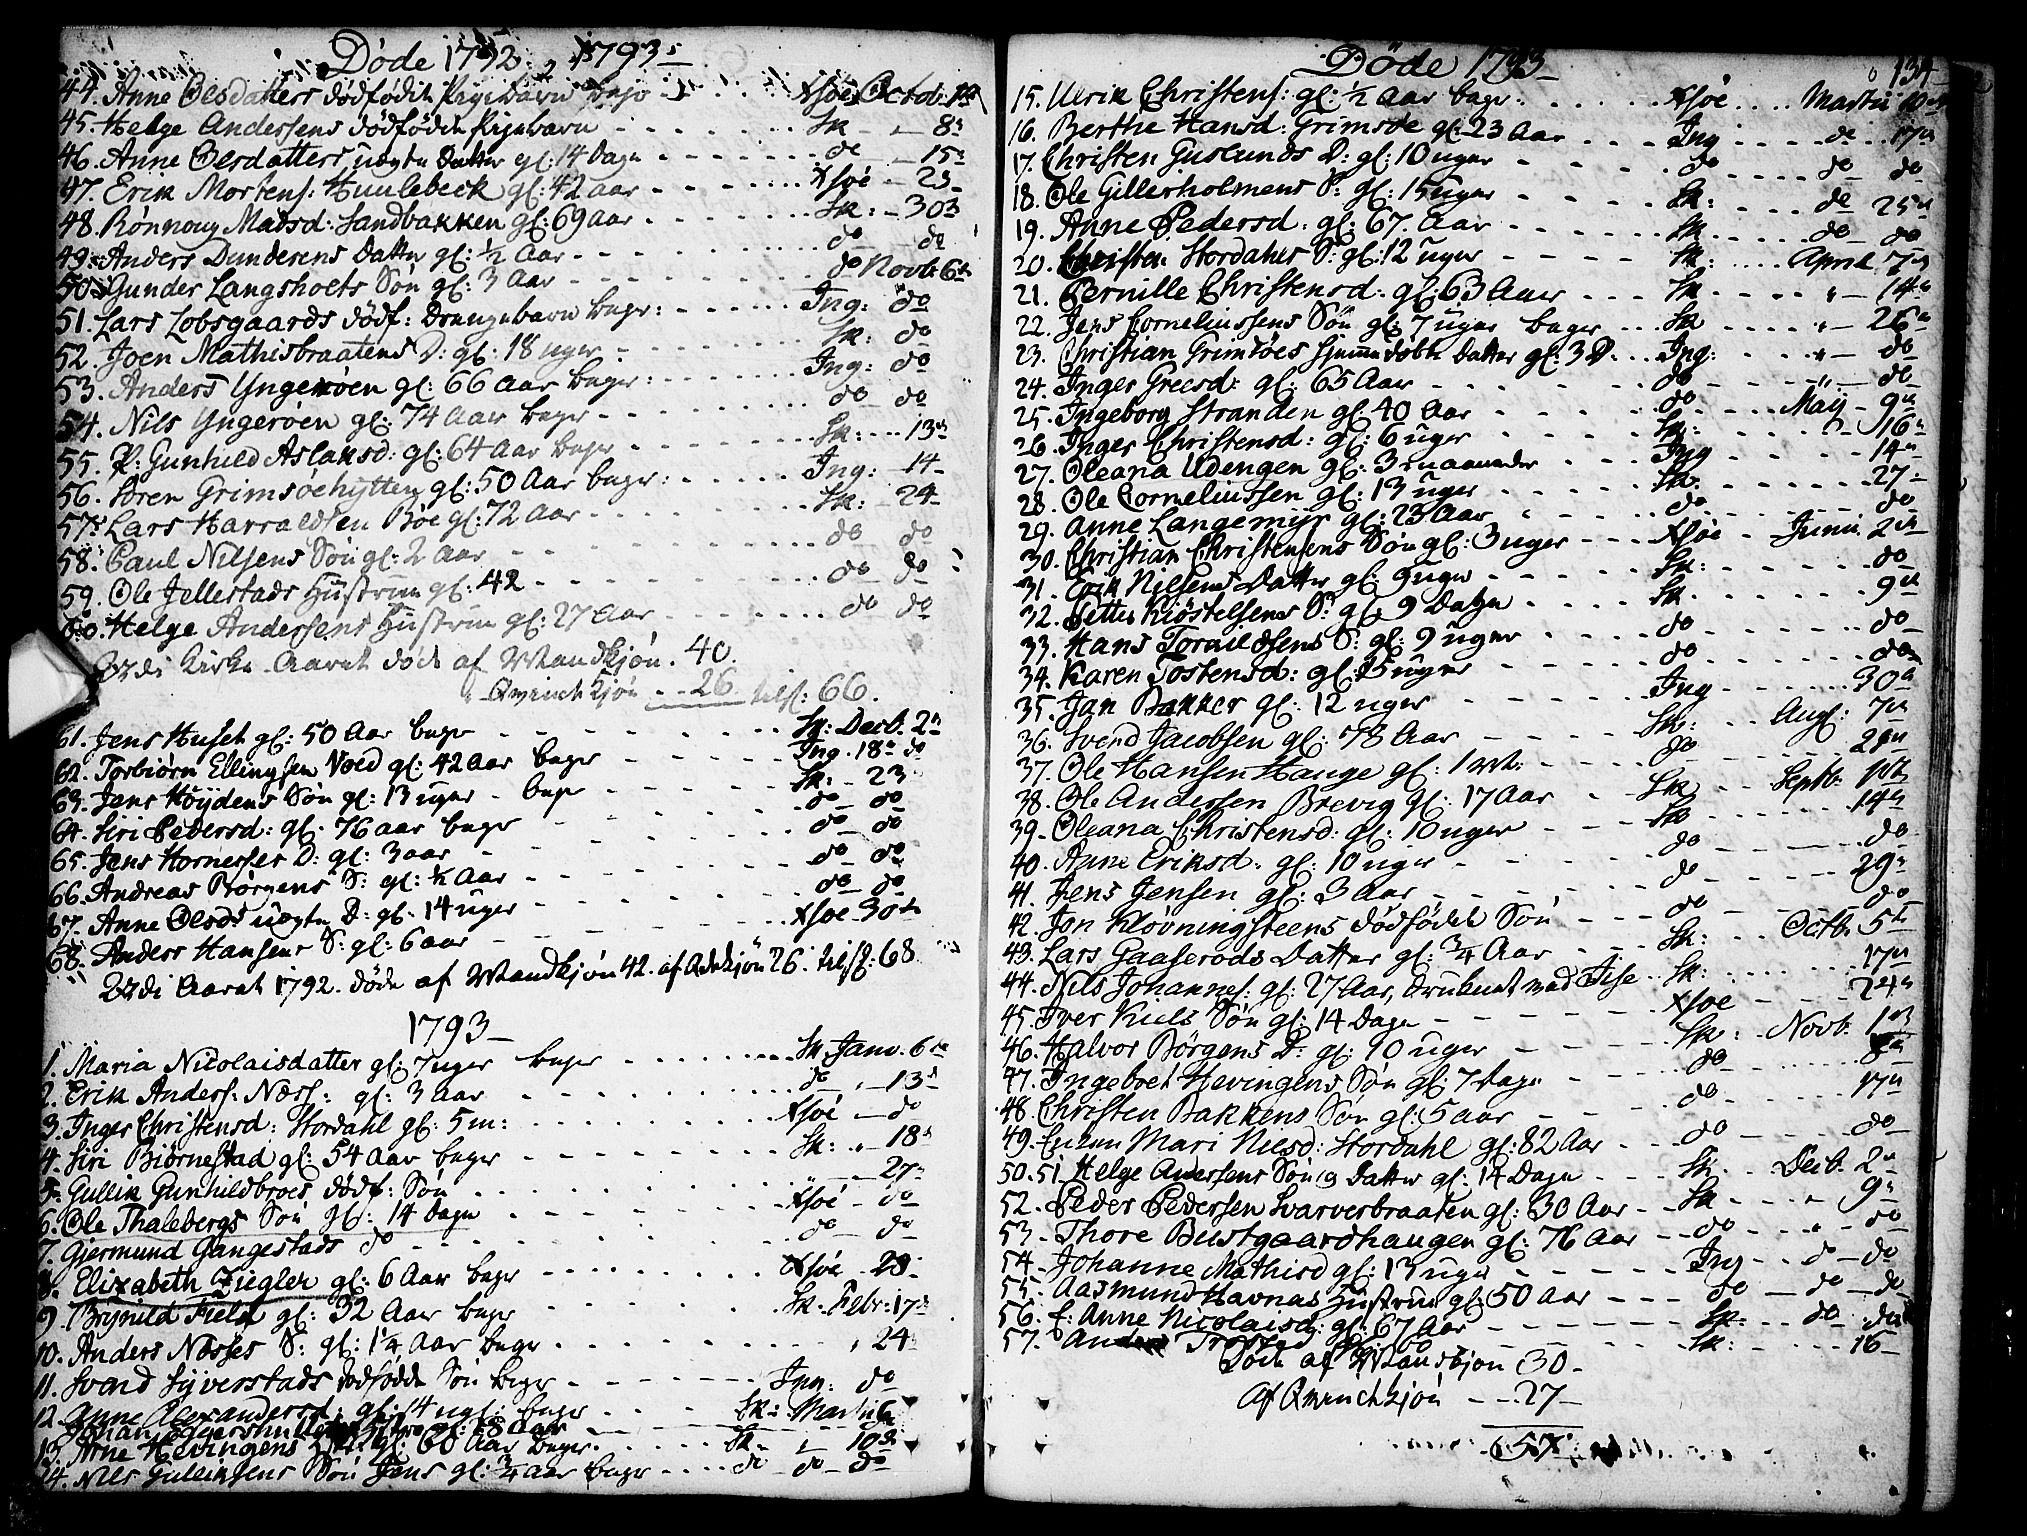 Døde 1792 & 1793
44. Anne Olsdatters dødfødte Pigebarn begr: Xsøe Octob. 1
45. Helge Andersens dødfødte Pigebarn Sk 8
46. Anne Olsdatters uægte Datter gl: 14 Dage do 15
47. Erik Mortens: Huulebeck gl: 42 aar Xsøe 23
48. Rønnoug Madsd: Sandbakken gl: 69 aar Sk: 30
49. Anders Dunderens Datter gl: ½ Aar do do
50. Gunder Langsholts Søn gl: 3 Aar do Novb: 6
51. Lars Lobsgaards dødf: Drengebarn begr: Ing: do
52. Joen Mathisbraatens D: gl: 18 uger Sk: do
53. Anders Yngerøen gl: 66 aar begr: Ing: do
54. Nils Yngerøen gl: 74 aar begr do do
55. P: Gunhild Aslaksd: gl: 64 aar begr Sk: 13
56. Søren Grimsøehytten gl: 50 Aar begr: Ing: 14
57. Lars Harraldsen Bøe gl: 72 Aar Sk: 24
58. Paul Nilsens Søn gl: 2 Aar do do
59. Ole Jellestads Hustrue gl: 42 do do
60. Helge Andersens Hustrue gl: 27 Aar do do
di Kirke-Aaret døde af Mandkjøn. 40.
Qvindekjøn 26. tils: 66.
61. Jens Huset gl: 50 Aar begr Sk: Decb. 2
62. Torbiørn Ellingsen Voed gl: 42 Aar begr Ing. 18 do
63. Jens Høydens Søn gl: 13 uger begr Sk: 23
64. Siri Pedersd: gl: 76 aar begr do do
65. Jens Hornesses D: gl: 3 aar do do
66. Andreas Børgens S: gl: ½ Aar do do
67. Anne Olsds uægte D: gl: 14 uger do do
68. Anders Hansens S: gl: 6 aar Xsøe 30
di Aaret 1792. døde af Mandkjøn 42. af Qvkjøn 26. tils: 68.
1793
1. Maria Nicolaisdatter gl: 7 uger begr Sk Janv. 6
2. Erik Anders: Næss: gl: 3 aar do 13
3. Inger Christensd: Stordahl gl: 5 m: Xsøe do
4. Siri Biørnestad gl: 54 aar begr Sk: 18
5. Gullik Gunhildbroes dødf: Søn 27
6. Ole Thalebergs Søn gl: 14 Dage Xsøe do
7. Gjermund Gangestads do do do
8. Elizabeth Ziegler gl: 6 Aar begr Xsøe 28
9. Brynild Field gl: 32 Aar begr Sk: Febr: 17
10. Anders Næsses S: gl: 1¼ Aar begr 24
11. Svend Syverstads dødfødde Søn begr Ing: do
12. Anne Alexandersd: gl: 14 ug: begr Sk: Martii
13. Arne Hevingens gl: 60 Aar begr. Sk 10
14. Nils Gulliksens Søn Jens gl: ¾ aar begr do do do
Døde 1793
134
15. Ulrik Christens: gl: ½ Aar begr: Xsøe Martii 10
16. Berthe Hansd: Grimsøe gl: 23 Aar Ing do 17
17. Christen Guslunds D: gl: 10 uger do do do
18. Ole Gillerholmens S: gl: 15 uger Sk: do 25
19. Anne Pedersd: gl: 67. Aar Sk do do
20. Christen Stordahls S: gl: 12 uger Sk: April 7
21. Pernille Christensd: gl: 63 Aar Sk 14
22. Jens Corneliussens Søn gl: 7 uger begr Sk 26
23. Christian Grimsøes hjemmedøbte Datter gl: 3 D. Ing: do
24. Inger Greesd: gl: 65 Aar do do
25. Ingeborg Stranden gl: 40 Aar do Maij 9
26. Inger Christensd: gl: 6 uger Sk: 16
27. Oleana Udengen gl: 3 maaneder Ing 14
28. Ole Corneliussen gl: 13 uger Sk. 27
29. Anne Langemyr gl: 23 Aar do do
30. Christian Christensens Søn gl: 3 uger Xsøe Junii 2
31. Erik Nilsens Datter gl: 5 uger Sk: do
32. Petter Kiøstelsens S: gl: 9 Dage Sk 9
33. Hans Torvildsens S: gl: 9 uger do do
34. Karen Tostensd: gl: 15 uger do do
35. Jan Bakker gl: 12 uger Ing 30
36. Svend Jacobsen gl: 78 Aar Sk: Aug: 7
37. Ole Hansen Hauge gl: 1 do 21
38. Ole Andersen Brevig gl: 17 Aar Sk Septb. 1
39. Oleana Christensd: gl: 10 uger Sk 14
40. Anne Eriksd: gl: 10 uger do do
41. Jens Jensen gl: 3 Aar do 29
42. Jon Kløvningsteens dødfødde Søn do do
43. Lars Gaaserøds Datter gl: ¾ Aar Sk: Octb. 5
44. Nils Johannes: gl: 27 Aar, druknet ved Isse Sk: 17
45. Iver Kiels Søn gl: 14 Dage Xsøe 24
46. Halvor Børgens D: gl: 10 uger Sk: Novb. 1
47. Ingebret Hevingens Søn gl: 7 Dage do 8
48. Christen Bakkens Søn gl: 5 aar do 17
49. Enken Mari Nilsd: Stordahl gl: 82 Aar do do
50. 51. Helge Andersens Søn og Datter gl: 14 Dage Sk. Decb. 2
52. Peder Pedersen Svarverbraaten gl: 30 Aar Sk 9
53. Thore Bustgaardhaugen gl: 76 Aar do do
54. Johanne Mathisd gl: 13 uger Ing do do
55. Aasmund Havnas Hustrue gl: 50 Aar do do do
56. f: Anne Nicolaisd: gl: 67 Aar Sk. do do
57. Anders Sk: 16
Døde af Mandkjøn 30
Af Qvindekjøn 27
57